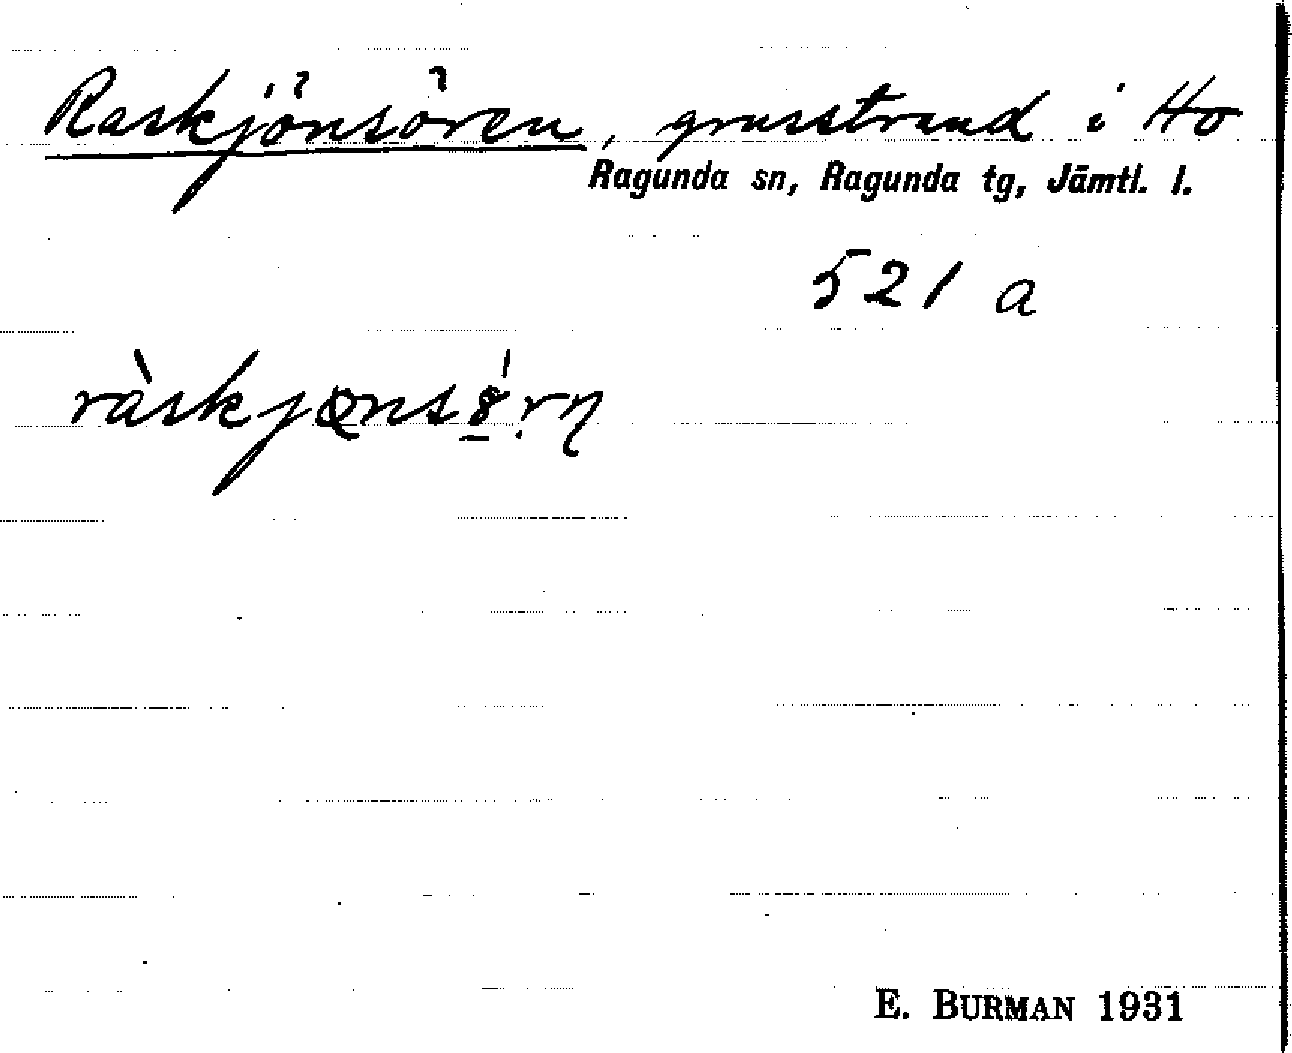 Raskjönsören, grusstrand i Ho
Ragunda sn, Ragunda tg, Jämtl. l.
521 a
E. BURMAN 1931